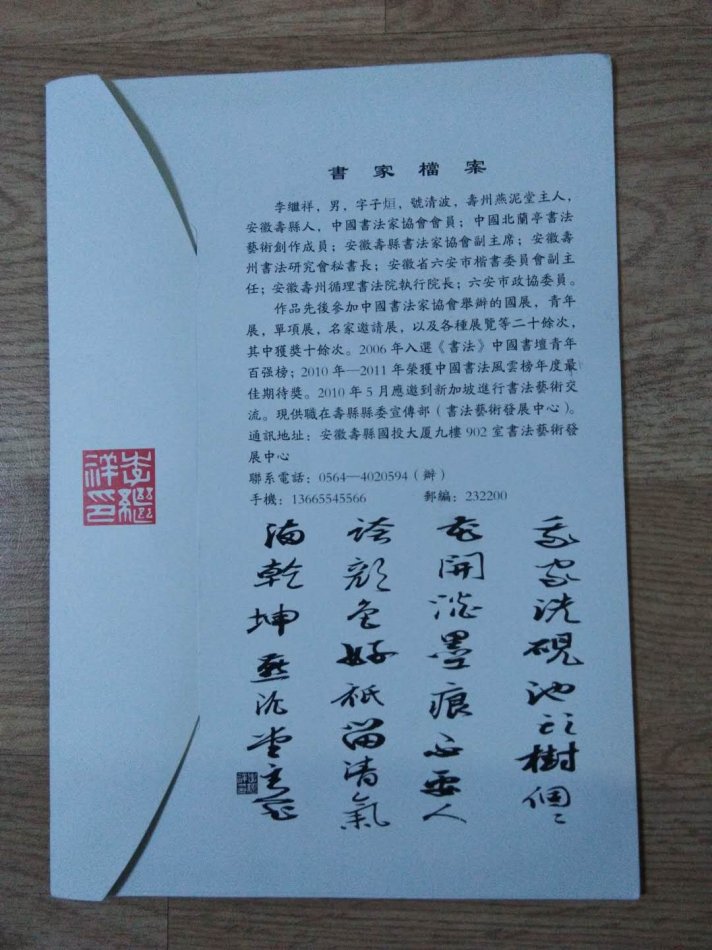 書家檔案
李繼祥，男，字子烜，號清波，壽州燕泥堂主人，
安徽壽縣人，中國書法家協會會員；中國北蘭亭書法
藝術創作成員；安徽壽縣書法家協會副主席；安徽壽
州書法研究會秘書長；安徽省六安市楷書委員會副主
任；安徽壽州循理書法院執行院長；六安市政協委員。
作品先後參加中國書法家協會舉辦的國展，青年
展，單項展，名家邀請展，以及各種展覽等二十餘次，
其中獲獎十餘次。2006年入選《書法》中國書壇青年
百强榜；2010年—2011年榮獲中國書法風雲榜年度最
佳期待獎。2010年5月應邀到新加坡進行書法藝術交
流。現供職在壽縣縣委宣傳部（書法藝術發展中心）。
通訊地址：安徽壽縣國投大厦九樓902室書法藝術發
展中心
聯系電話：0564—4020594（辦）
手機：13665545566 郵編：232200
李繼祥印
我家洗硯池頭樹個〻
花開淡墨痕不要人
誇顏色好祇留清氣
滿乾坤 燕泥堂主